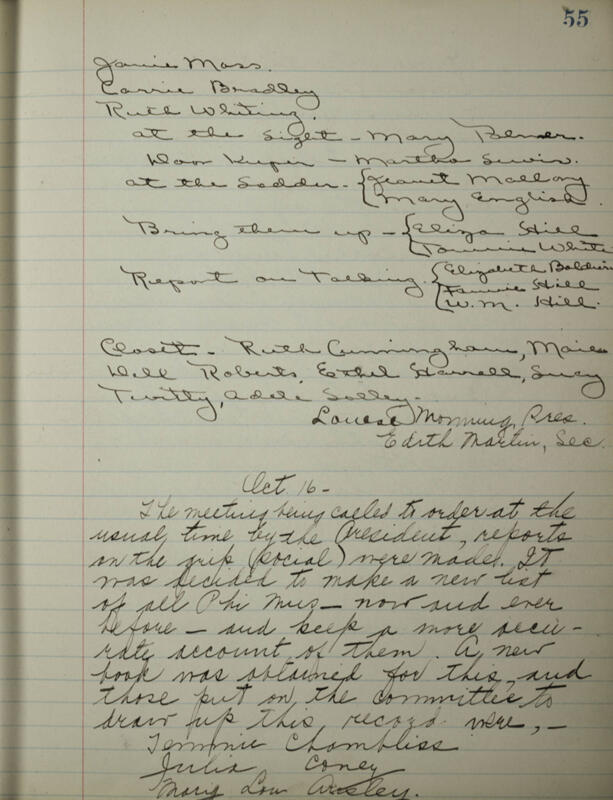 55
Janie Mass.
Carrie Bradley
Ruth Whiting.
at the Sight - Mary
Door Keeper - Martha
at the Ladder - { Jeanet Mallory
Mary English
Bring them up - { Eliza Hill
Fannie White
Report on Talking. { Elizabeth Baldwin
Fannie Hill
W. M. Hill.
Closet - Ruth Cunningham, Marie
Dell Roberts, Ethel Harrell, Lucy
Adele
Louise Morning, Pres.
Edith Martin, Sec.
Oct 16 -
The meeting being called to order at the
usual time by the President, reports
on the grip (social) were made. It
was decided to make a new list
of all Phi Mus - now and ever
before - and keep a more accu-
rate account of them. A new
book was obtained for this, and
those put on the committee to
draw up this record were, -
Temmie Chambliss
Julia Coney
Mary Lou